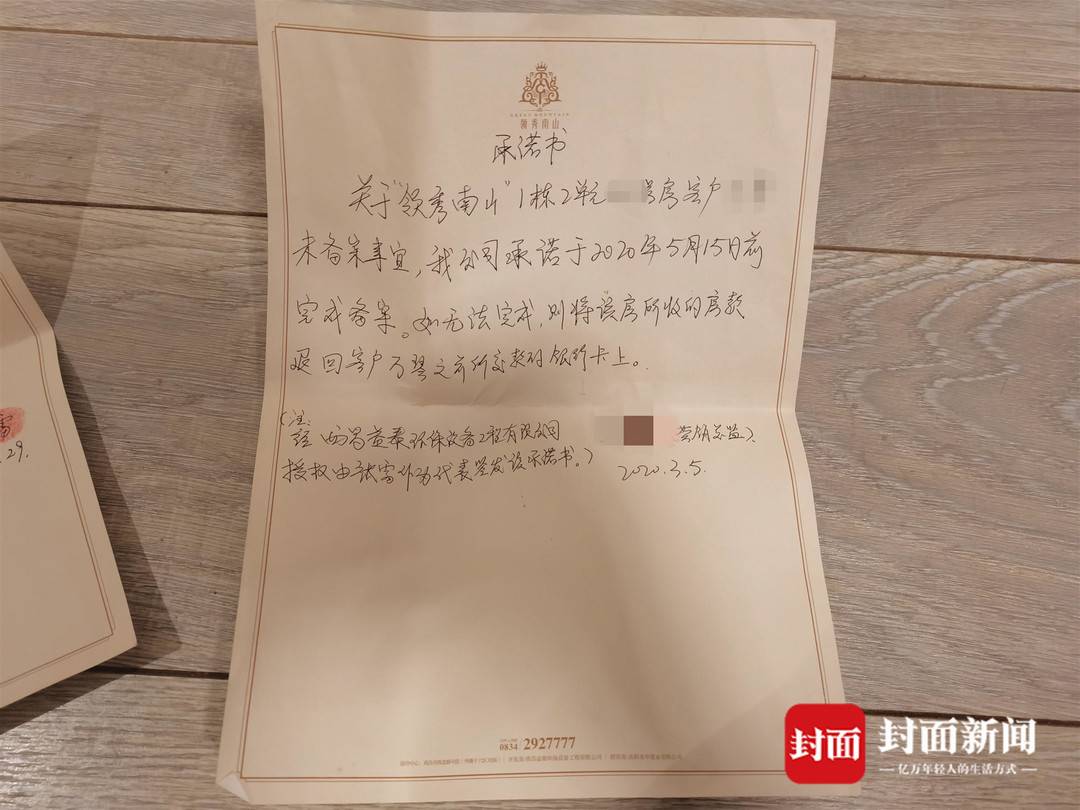 GREAT MOUNTAIN
领秀南山
承诺书
关于“领秀南山”1栋2单元 号房客户
未备案事宜，我公司承诺于2020年5月15日前
完成备案。如无法完成，则将该房所收的房款
退回客户 之前所交款的银行卡上。
(注：
经西昌益泰环保设备工程有限公司 营销总监)
授权由张雷作为代表签发该承诺书。) 2020.3.5.
雷
.29.
0834 2927777
封面 封面新闻
亿万年轻人的生活方式